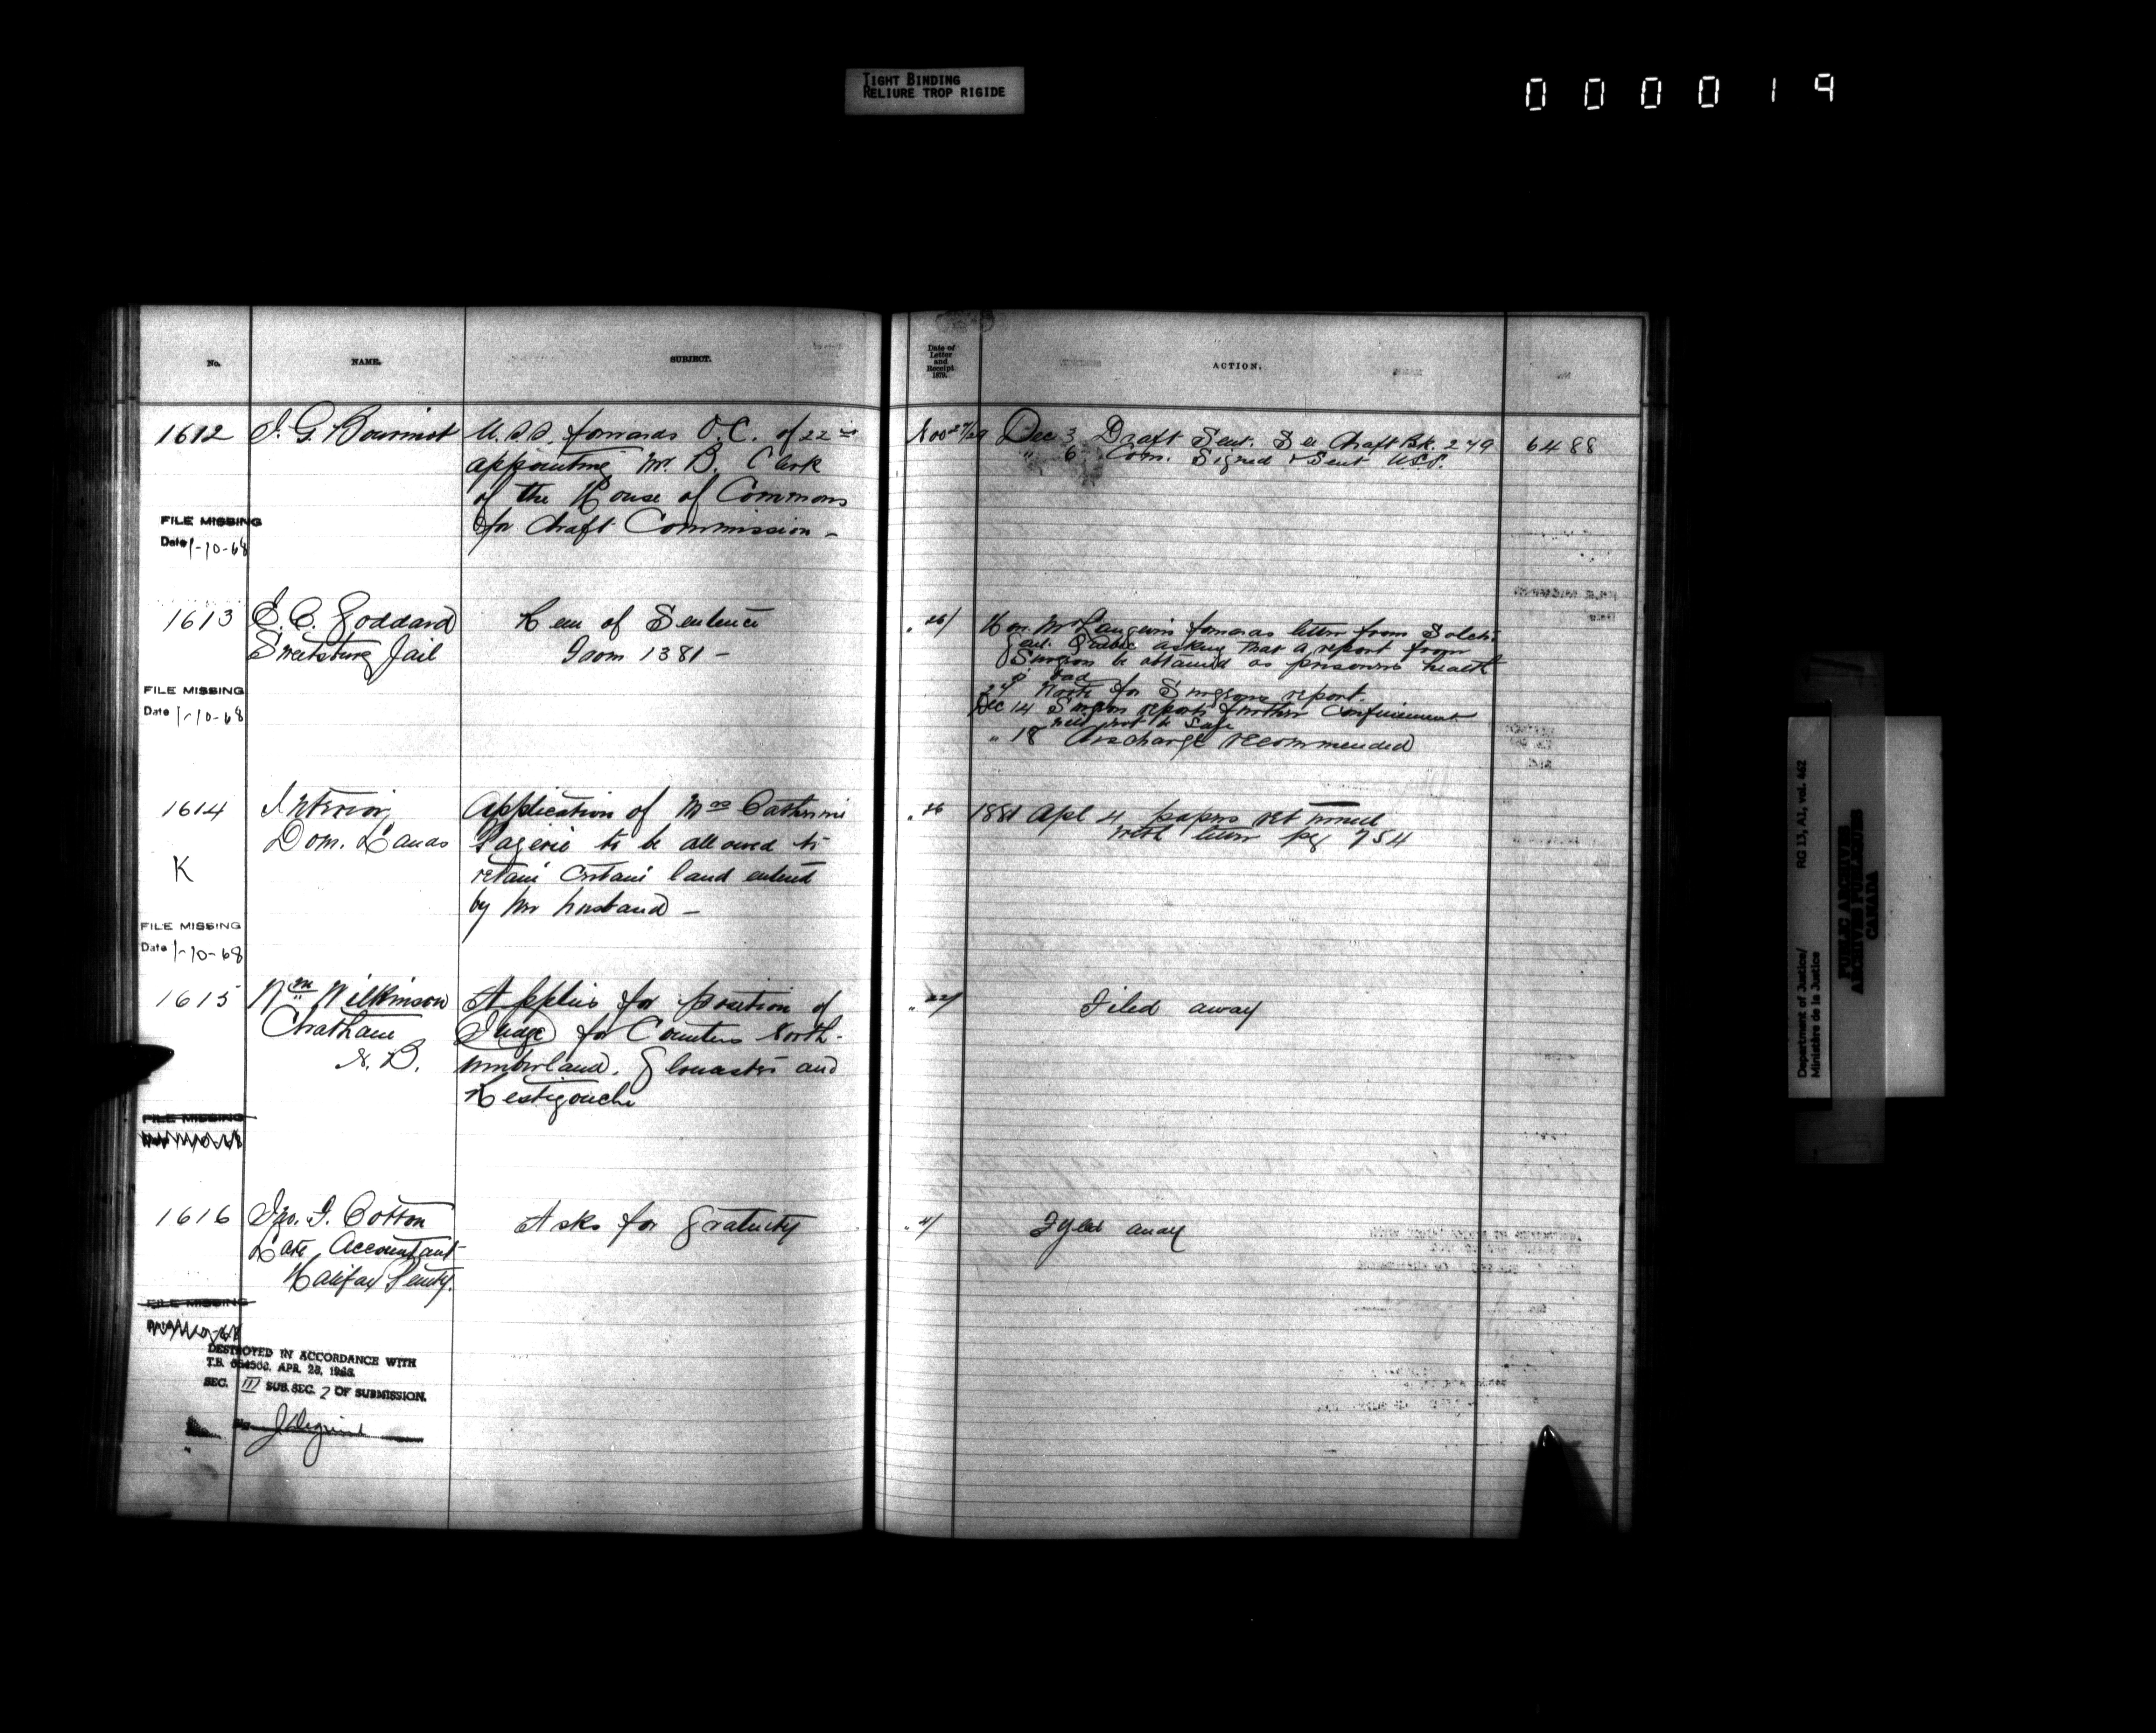 TIGHT BINDING
RELIURE TROP RIGIDE
000019
No.
NAME.
SUBJECT.
Date of
Letter
and
Receipt
1879.
ACTION.
1612
J. G. Bourinot
U.S.S. forwards O.C. of 22
appointing Mr. B. Clerk
of the House of Commons
for draft Commission -
Nov 27/29
Dec 3 Draft Sent. See Draft Bk. 279
" 6 Com. Signed & Sent U.S.S.
6488
FILE MISSING
Date 1-10-68
1613
E. C. Goddard
Sweetsburg Jail
Rem of Sentence
From 1381 -
" 26/
Hon. Mr Langevin forwards letter from
asking that a report from
Surgeon be obtained as prisoners health
is bad
27 Wrote for Surgeons report.
Dec 14 Surgeon reports further confinement
will not be safe
" 18 Discharge recommended
FILE MISSING
Date 1-10-68
1614
Interior
Dom. Lands
K
Application of Mrs Catherine
to be allowed to
retain certain land entered
by her husband -
" 26
1881 Apl 4 papers returned
with letter pg 754
FILE MISSING
Date 1-10-68
1615
Wm Wilkinson
Chatham
N. B.
Applies for position of
Judge for Counties North-
umberland, Gloucester and
Restigouche
" 22/
Filed away
FILE MISSING
1616
Jno. F. Cotton
Late Accountant
Halifax Penity.
Asks for Gratuity
" 4/
Fyled away
FILE MISSING
DESTROYED IN ACCORDANCE WITH
T.B. APR. 28,
SEC. III SUB. SEC. 2 OF SUBMISSION.
Department of Justice/
Ministère de la Justice
RG 13, A1, vol. 462
PUBLIC ARCHIVES
ARCHIVES PUBLIQUES
CANADA